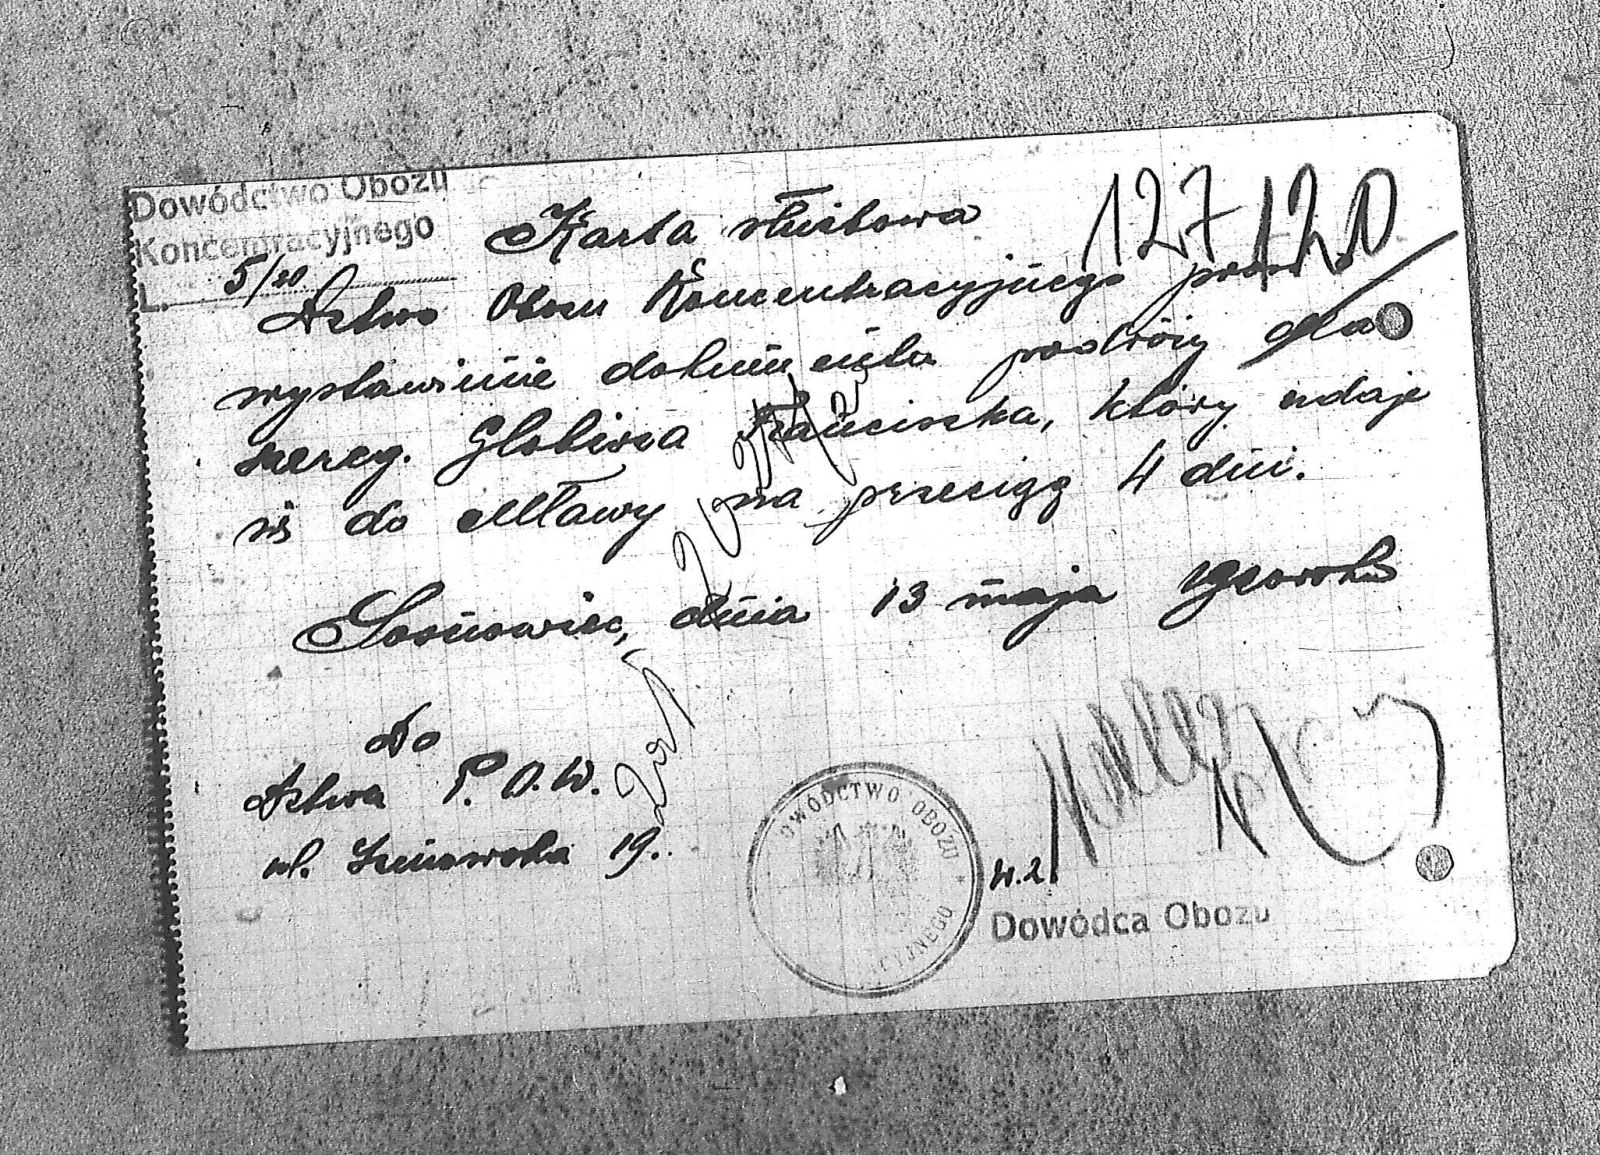 Dowództwo Obozu
Koncentracyjnego
L. 5/20
Karta służbowa
127 120
Dztwo Obozu Koncentracyjnego prosi o
wystawienie dokumentu podróży dla
szereg. Globisza Franciszka, który udaje
się do Mławy na przeciąg 4 dni.
Sosnowiec, dnia 13 maja 1920 roku
Do
Dztwa P.O.W.
ul. 19.
DOWÓDCTWO OBOZU
CYJNEGO
w.z.
Dowódca Obozu